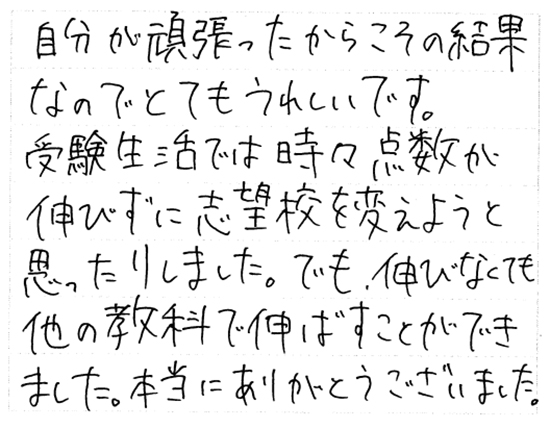 自分が頑張ったからこその結果
なのでとてもうれしいです。
受験生活では時々点数が
伸びずに志望校を変えようと
思ったりしました。でも、伸びなくても
他の教科で伸ばすことができ
ました。本当にありがとうございました。